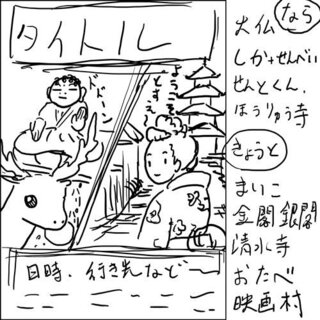 タイトル
ドドン
ようこそ
日時、行き先など〜
なら
大仏
しか+せんべい
せんとくん、
ほうりゅう寺
きょうと
まいこ
金閣銀閣
清水寺
おたべ
映画村